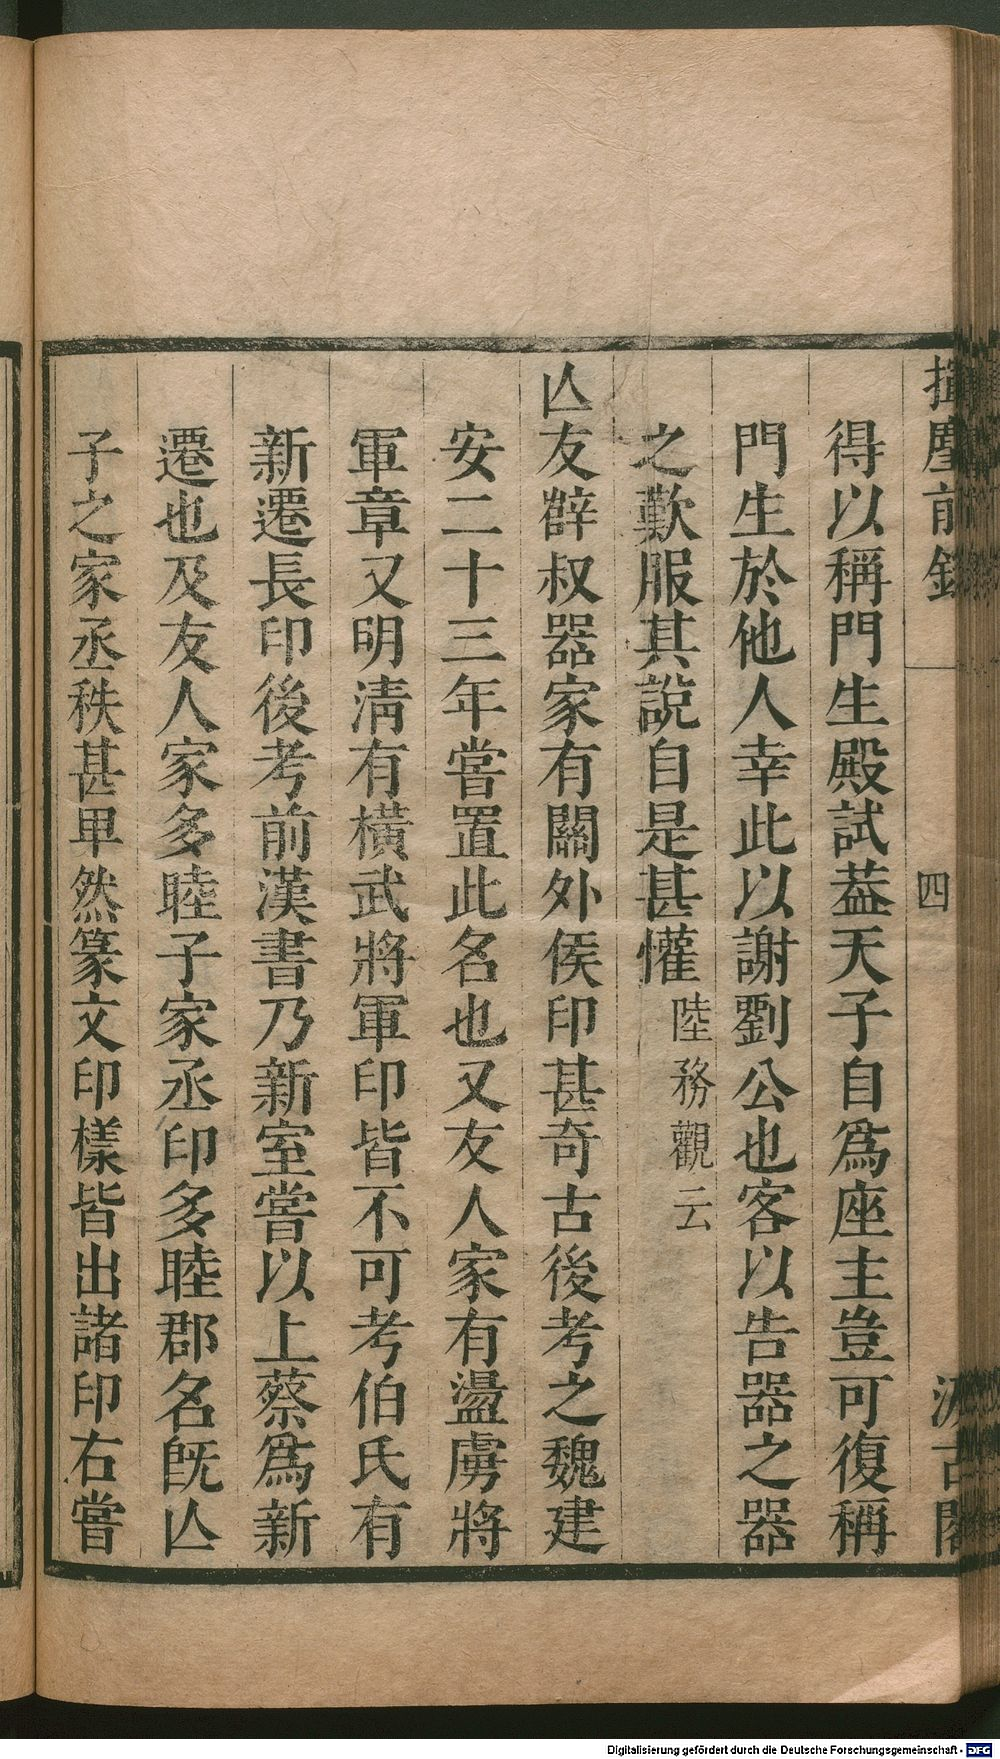 揮麈前錄
四
汲古閣
得以稱門生殿試葢天子自爲座主豈可復稱
門生於他人幸此以謝劉公也客以告器之器
之歎服其說自是甚懽陸務觀云
亾友薛叔器家有關外侯印甚奇古後考之魏建
安二十三年嘗置此名也又友人家有盪虜將
軍章又明淸有橫武將軍印皆不可考伯氏有
新遷長印後考前漢書乃新室嘗以上蔡爲新
遷也及友人家多睦子家丞印多睦郡名旣亾
子之家丞秩甚𤰞然篆文印樣皆出諸印右嘗
Digitalisierung gefördert durch die Deutsche Forschungsgemeinschaft - DFG